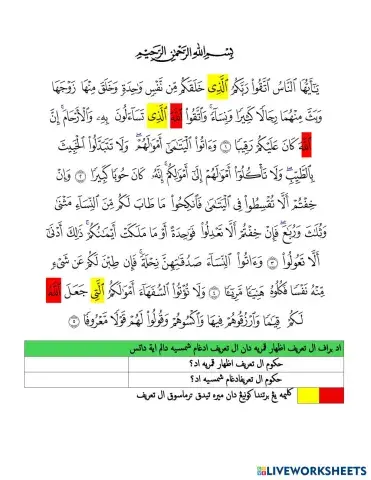 بِسْمِ ٱللَّهِ ٱلرَّحْمَٰنِ ٱلرَّحِيمِ
يَٰٓأَيُّهَا ٱلنَّاسُ ٱتَّقُوا۟ رَبَّكُمُ ٱلَّذِى خَلَقَكُم مِّن نَّفْسٍ وَٰحِدَةٍ وَخَلَقَ مِنْهَا زَوْجَهَا
وَبَثَّ مِنْهُمَا رِجَالًا كَثِيرًا وَنِسَآءً ۚ وَٱتَّقُوا۟ ٱللَّهَ ٱلَّذِى تَسَآءَلُونَ بِهِۦ وَٱلْأَرْحَامَ ۚ إِنَّ
ٱللَّهَ كَانَ عَلَيْكُمْ رَقِيبًا ١ وَءَاتُوا۟ ٱلْيَتَٰمَىٰٓ أَمْوَٰلَهُمْ ۖ وَلَا تَتَبَدَّلُوا۟ ٱلْخَبِيثَ
بِٱلطَّيِّبِ ۖ وَلَا تَأْكُلُوٓا۟ أَمْوَٰلَهُمْ إِلَىٰٓ أَمْوَٰلِكُمْ ۚ إِنَّهُۥ كَانَ حُوبًا كَبِيرًا ٢ وَإِنْ
خِفْتُمْ أَلَّا تُقْسِطُوا۟ فِى ٱلْيَتَٰمَىٰ فَٱنكِحُوا۟ مَا طَابَ لَكُم مِّنَ ٱلنِّسَآءِ مَثْنَىٰ
وَثُلَٰثَ وَرُبَٰعَ ۖ فَإِنْ خِفْتُمْ أَلَّا تَعْدِلُوا۟ فَوَٰحِدَةً أَوْ مَا مَلَكَتْ أَيْمَٰنُكُمْ ۚ ذَٰلِكَ أَدْنَىٰٓ
أَلَّا تَعُولُوا۟ ٣ وَءَاتُوا۟ ٱلنِّسَآءَ صَدُقَٰتِهِنَّ نِحْلَةً ۚ فَإِن طِبْنَ لَكُمْ عَن شَىْءٍ
مِّنْهُ نَفْسًا فَكُلُوهُ هَنِيٓـًٔا مَّرِيٓـًٔا ٤ وَلَا تُؤْتُوا۟ ٱلسُّفَهَآءَ أَمْوَٰلَكُمُ ٱلَّتِى جَعَلَ ٱللَّهُ
لَكُمْ قِيَٰمًا وَٱرْزُقُوهُمْ فِيهَا وَٱكْسُوهُمْ وَقُولُوا۟ لَهُمْ قَوْلًا مَّعْرُوفًا ٥
اد براف ال تعريف اظهار قمريه دان ال تعريف ادغام شمسيه دالم اية دأتس
حكوم ال تعريف اظهار قمريه اد؟
حكوم ال تعريف ادغام شمسيه اد؟
كلمه يڠ برتندا كونيڠ دان ميره تيدق ترماسوق ال تعريف
LIVEWORKSHEETS